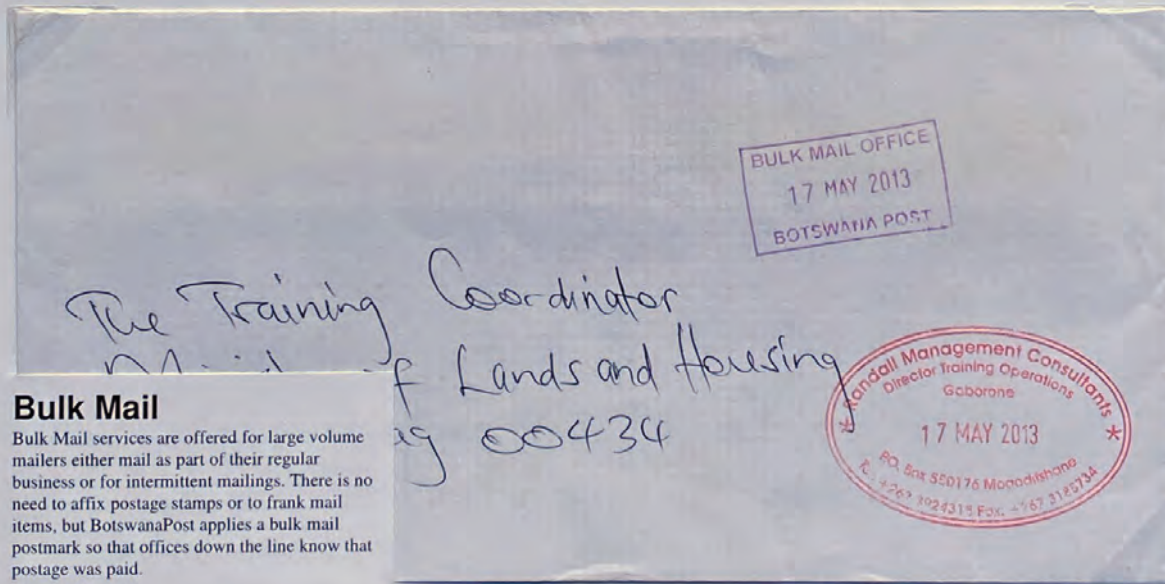 BULK MAIL OFFICE
17 MAY 2013
BOTSWANA POST
The Training Coordinator
of Lands and Housing
00434
Randall Management Consultants
Director Training Operations
Gaborone
17 MAY 2013
P.O. Box 50176 Mogoditshane
+267 3924318 Fax: +267 3185734
Bulk Mail
Bulk Mail services are offered for large volume
mailers either mail as part of their regular
business or for intermittent mailings. There is no
need to affix postage stamps or to frank mail
items, but BotswanaPost applies a bulk mail
postmark so that offices down the line know that
postage was paid.